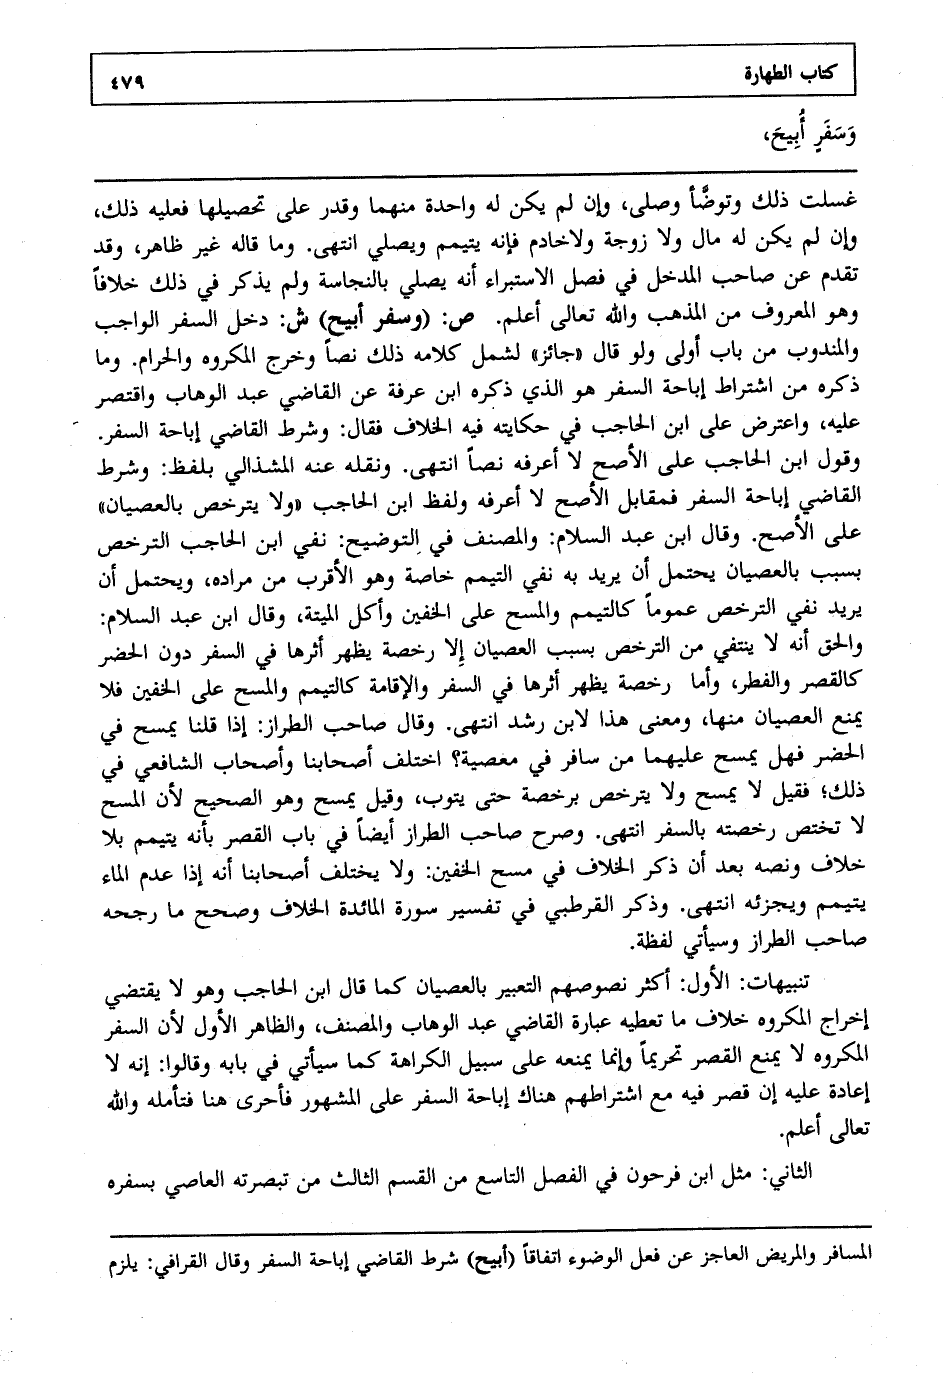 كتاب الطهارة
٤٧٩
وَسَفَرٍ أُبِيحَ،
غسلت ذلك وتوضَّأ وصلى، وإن لم يكن له واحدة منهما وقدر على تحصيلها فعليه ذلك،
وإن لم يكن له مال ولا زوجة ولاخادم فإنه يتيمم ويصلي انتهى. وما قاله غير ظاهر، وقد
تقدم عن صاحب المدخل في فصل الاستبراء أنه يصلي بالنجاسة ولم يذكر في ذلك خلافاً
وهو المعروف من المذهب والله تعالى أعلم. ص: (وسفر أبيح) ش: دخل السفر الواجب
والمندوب من باب أولى ولو قال «جائز» لشمل كلامه ذلك نصاً وخرج المكروه والحرام. وما
ذكره من اشتراط إباحة السفر هو الذي ذكره ابن عرفة عن القاضي عبد الوهاب واقتصر
عليه، واعترض على ابن الحاجب في حكايته فيه الخلاف فقال: وشرط القاضي إباحة السفر.
وقول ابن الحاجب على الأصح لا أعرفه نصاً انتهى. ونقله عنه المشذالي بلفظ: وشرط
القاضي إباحة السفر فمقابل الأصح لا أعرفه ولفظ ابن الحاجب «ولا يترخص بالعصيان»
على الأصح. وقال ابن عبد السلام: والمصنف في التوضيح: نفي ابن الحاجب الترخص
بسبب بالعصيان يحتمل أن يريد به نفي التيمم خاصة وهو الأقرب من مراده، ويحتمل أن
يريد نفي الترخص عموماً كالتيمم والمسح على الخفين وأكل الميتة، وقال ابن عبد السلام:
والحق أنه لا ينتفي من الترخص بسبب العصيان إلا رخصة يظهر أثرها في السفر دون الحضر
كالقصر والفطر، وأما رخصة يظهر أثرها في السفر والإقامة كالتيمم والمسح على الخفين فلا
يمنع العصيان منها، ومعنى هذا لابن رشد انتهى. وقال صاحب الطراز: إذا قلنا يمسح في
الحضر فهل يمسح عليهما من سافر في معصية؟ اختلف أصحابنا وأصحاب الشافعي في
ذلك؛ فقيل لا يمسح ولا يترخص برخصة حتى يتوب، وقيل يمسح وهو الصحيح لأن المسح
لا تختص رخصته بالسفر انتهى. وصرح صاحب الطراز أيضاً في باب القصر بأنه يتيمم بلا
خلاف ونصه بعد أن ذكر الخلاف في مسح الخفين: ولا يختلف أصحابنا أنه إذا عدم الماء
يتيمم ويجزئه انتهى. وذكر القرطبي في تفسير سورة المائدة الخلاف وصحح ما رجحه
صاحب الطراز وسيأتي لفظة.
تنبيهات: الأول: أكثر نصوصهم التعبير بالعصيان كما قال ابن الحاجب وهو لا يقتضي
إخراج المكروه خلاف ما تعطيه عبارة القاضي عبد الوهاب والمصنف، والظاهر الأول لأن السفر
المكروه لا يمنع القصر تحريماً وإنما يمنعه على سبيل الكراهة كما سيأتي في بابه وقالوا: إنه لا
إعادة عليه إن قصر فيه مع اشتراطهم هناك إباحة السفر على المشهور فأحرى هنا فتأمله والله
تعالى أعلم.
الثاني: مثل ابن فرحون في الفصل التاسع من القسم الثالث من تبصرته العاصي بسفره
المسافر والمريض العاجز عن فعل الوضوء اتفاقاً (أبيح) شرط القاضي إباحة السفر وقال القرافي: يلزم